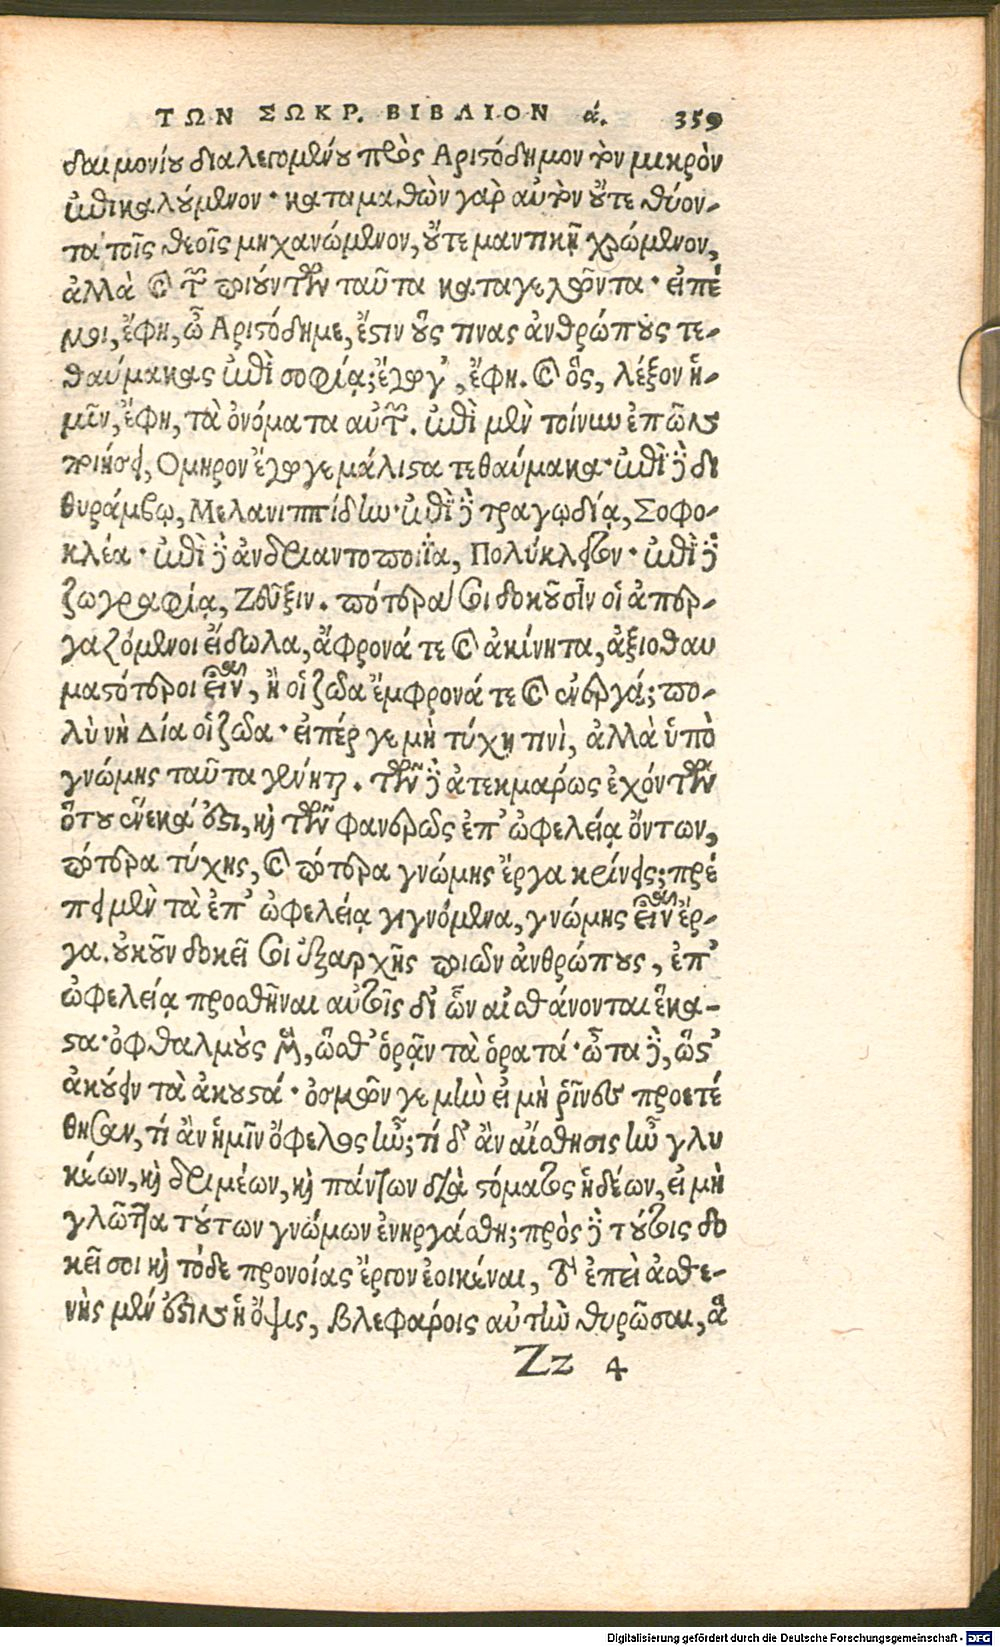 ΤΩΝ ΣΩΚΡ. ΒΙΒΛΙΟΝ ά. 359
δαιμονίου διαλεγομένου πρὸς Αριστόδημον τὸν μικρὸν
ἐπικαλούμενον· καταμαθὼν γὰρ αὐτὸν οὔτε θύον-
τα τοῖς θεοῖς μηχανώμενον, οὔτε μαντικῇ χρώμενον,
ἀλλὰ καὶ τῶν ποιούντων ταῦτα καταγελῶντα· εἰπέ
μοι, ἔφη, ὦ Αριστόδημε, ἔστιν οὕς τινας ἀνθρώπους τε-
θαύμακας ἐπὶ σοφίᾳ; ἔγωγ', ἔφη. καὶ ὃς, λέξον ἡ-
μῖν, ἔφη, τὰ ὀνόματα αὐτῶν. ἐπὶ μὲν τοίνυν ἐπῶν
ποιήσει, Ομηρον ἔγωγε μάλιστα τεθαύμακα· ἐπὶ δὲ δι
θυράμβῳ, Μελανιππίδην· ἐπὶ δὲ τραγῳδίᾳ, Σοφο-
κλέα· ἐπὶ δὲ ἀνδριαντοποιΐα, Πολύκλειτον· ἐπὶ δὲ
ζωγραφίᾳ, Ζεῦξιν. πότερα σοι δοκοῦσιν οἱ ἀπερ-
γαζόμενοι εἴδωλα, ἄφρονά τε καὶ ἀκίνητα, ἀξιοθαυ
μαστότεροι εἶναι, ἢ οἱ ζωα ἔμφρονά τε καὶ ἐνεργά; πο-
λὺ νὴ Δία οἱ ζωα· εἰπέρ γε μὴ τύχῃ τινὶ, ἀλλὰ ὑπὸ
γνώμης ταῦτα γένηται. τῶν δὲ ἀτεκμαρώς ἐχόντων
ὅτου ἕνεκά ἐστι, καὶ τῶν φανερῶς ἐπ' ὠφελείᾳ ὄντων,
πότερα τύχης, καὶ πότερα γνώμης ἔργα κρίνεις; πρέ
πει μὲν τὰ ἐπ' ὠφελείᾳ γιγνόμενα, γνώμης εἶναι ἔρ-
γα. οὐκοῦν δοκεῖ σοι ὁ ἐξαρχῆς ποιῶν ἀνθρώπους, ἐπ'
ὠφελείᾳ προσθῆναι αὐτοῖς δι' ὧν αἰσθάνονται ἕκα-
στα· ὀφθαλμοὺς μὲν, ὥσθ' ὁρᾷν τὰ ὁρατά· ὦτα δὲ, ὥστ'
ἀκούειν τὰ ἀκουστά· ὀσμῶν γε μὴν εἰ μὴ ῥῖνες προετέ
θησαν, τί ἂν ἡμῖν ὄφελος ἦν; τί δ' ἂν αἴσθησις ἦν γλυ
κέων, καὶ δριμέων, καὶ πάντων διὰ στόματος ἡδέων, εἰ μὴ
γλῶττα τούτων γνώμων ἐνηργάσθη; πρὸς δὲ τούτοις δο
κεῖ σοι καὶ τόδε προνοίας ἔργον ἐοικέναι, τὸ ἐπεὶ ἀσθε-
νὴς μέν ἐστιν ἡ ὄψις, βλεφάροις αὐτὴν θυρῶσαι, ἃ
Zz 4
Digitalisierung gefördert durch die Deutsche Forschungsgemeinschaft - DFG